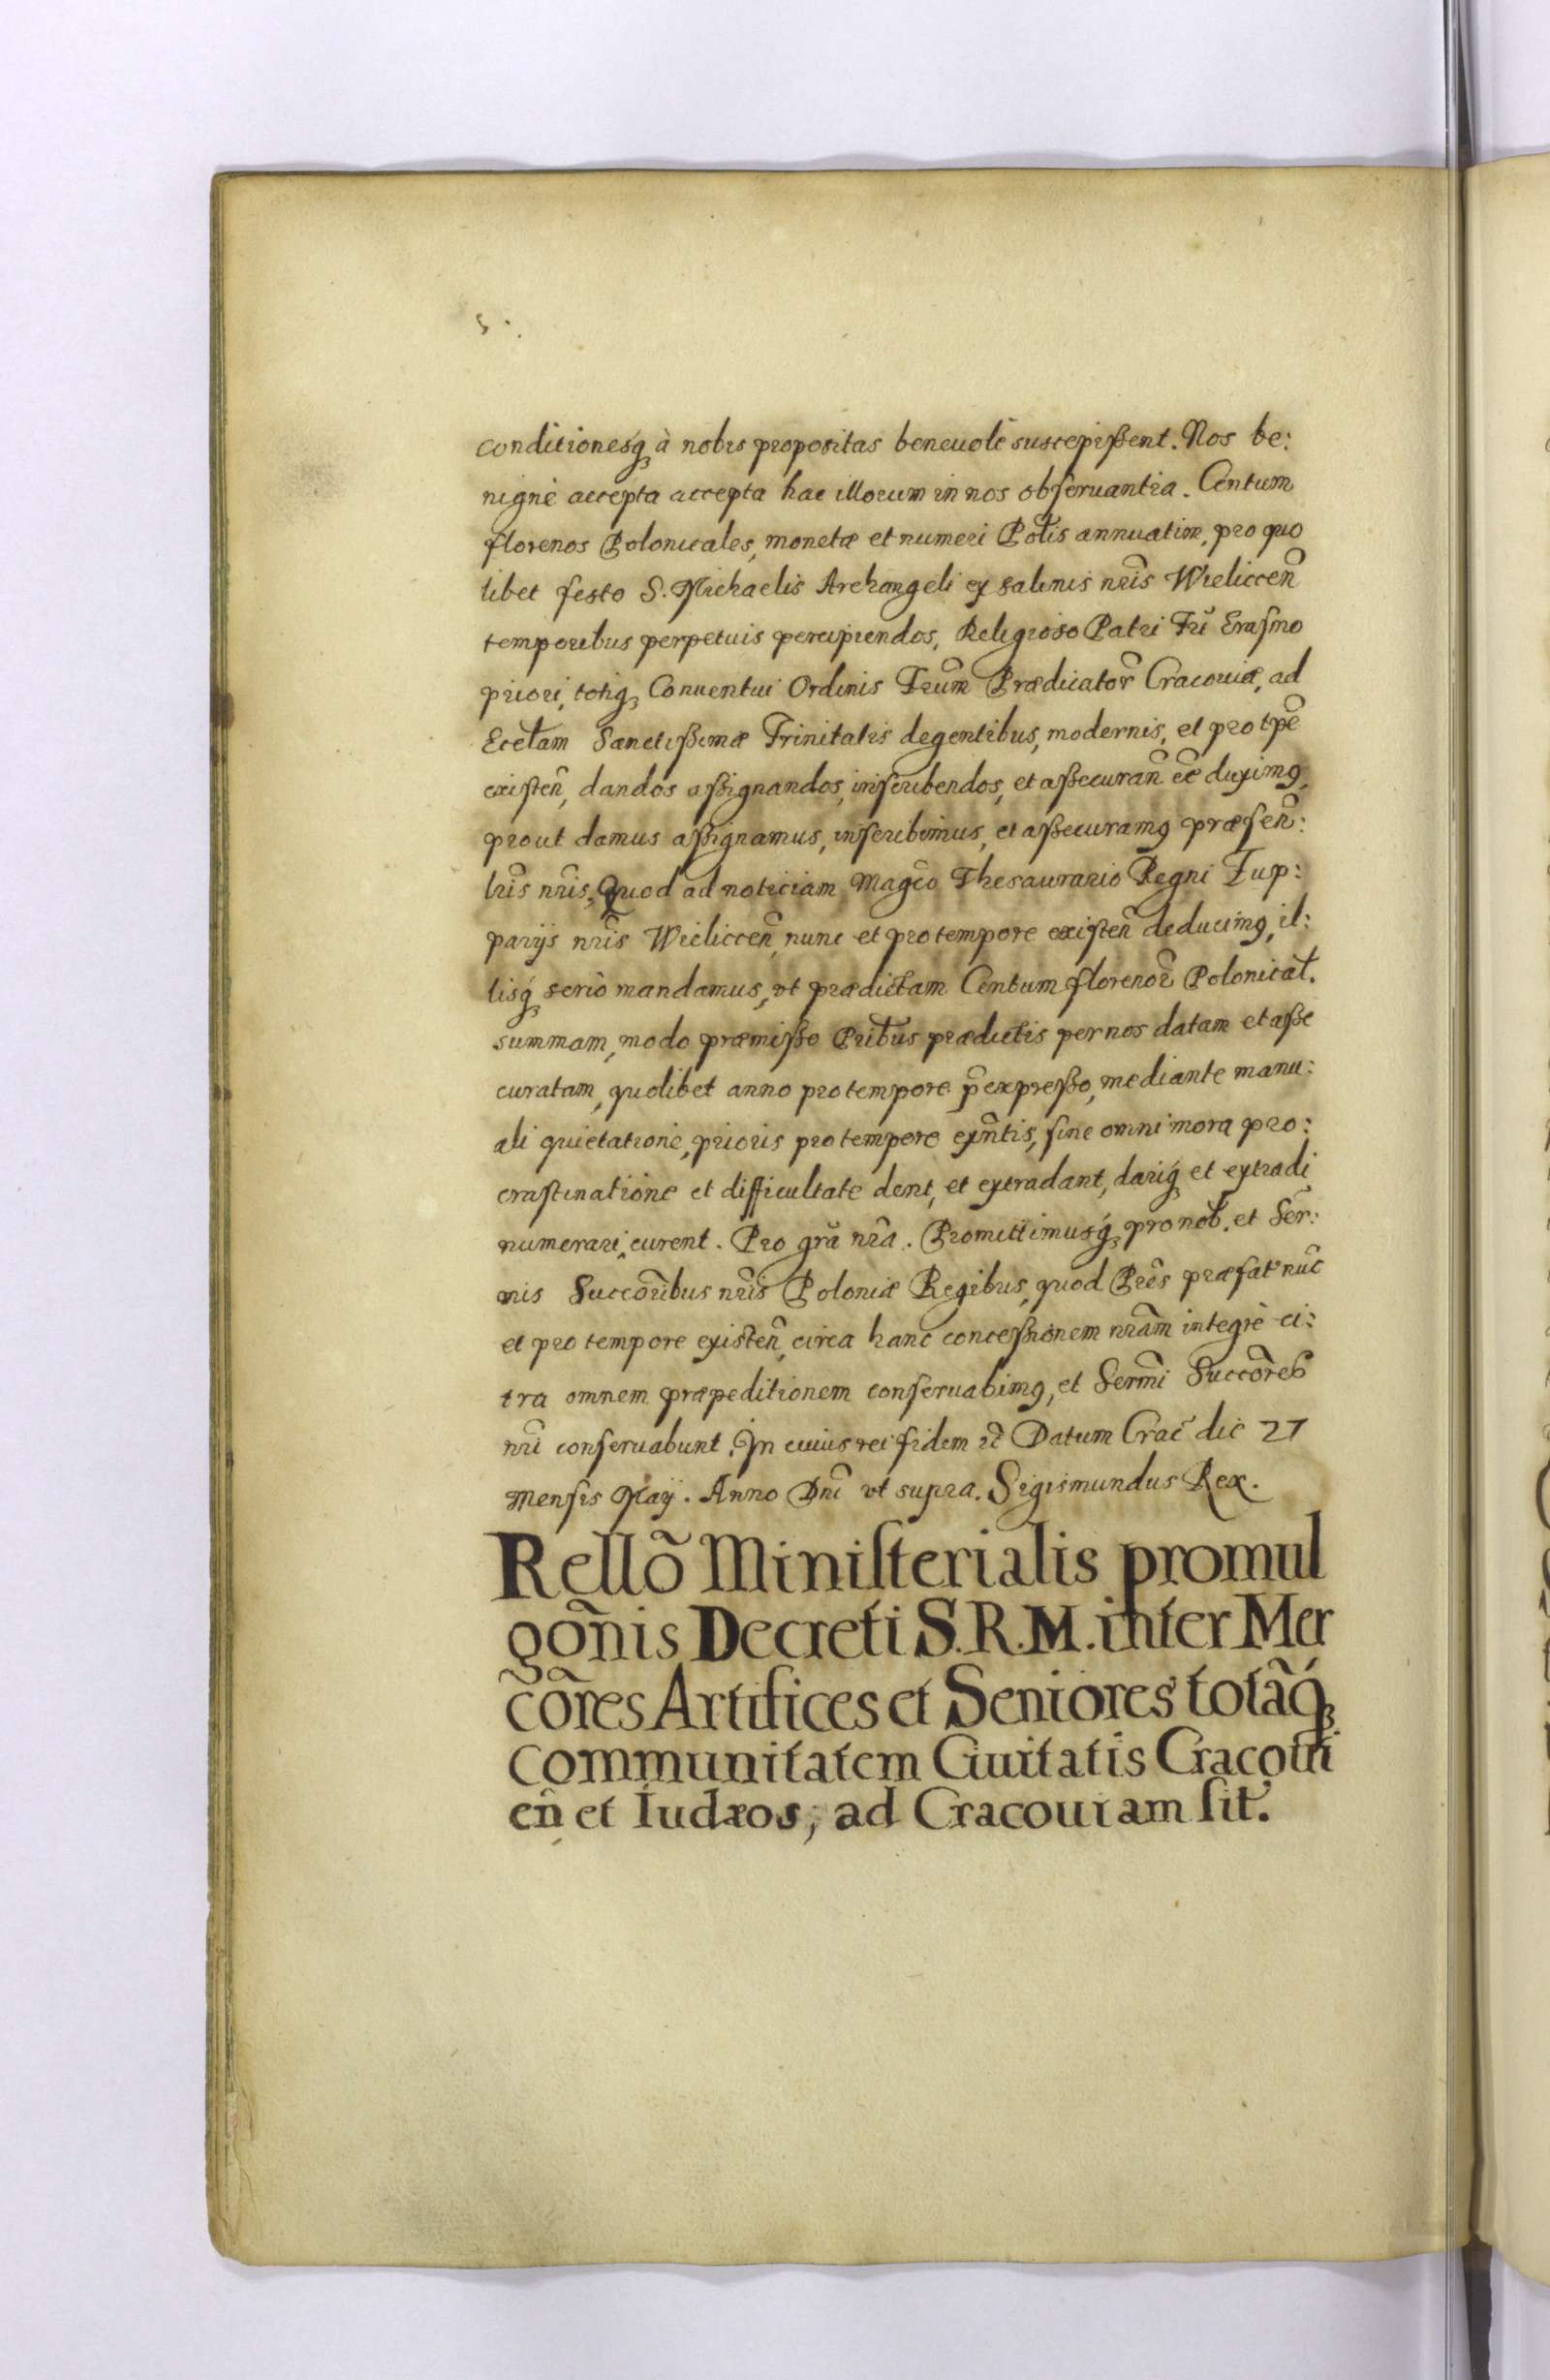 5.
conditionesq́ꝫ à nobis propositas beneuolè suscepißent. Nos be:
nignè accepta accepta hac illorum in nos obſeruantia. Centum
florenos Polonicales, monetæ et numeri Pol̃is annuatim, pro quo
libet festo S. Michaelis Archangeli ex salinis nr̃is Wieliccen̄
temporibus perpetuis percipiendos, Religioso Patri Fr̃i Eraſmo
priori, totiqꝫ Conuentui Ordinis Fr̃um Prædicator̃ Cracouiæ, ad
Eccl̃am Sanctißimæ Trinitatis degentibus, modernis, et pro tp̃e
existen̄, dandos aßignandos, inſcribendos, et aßecuran̄ eẽ duximꝰ,
prout damus aßignamus, inſcribimus, et aßecuramꝰ præſen̄:
lr̃is nr̃is, Quod ad noticiam Magc̃o Thesaurario Regni Zup:
parijs nr̃is Wieliccen̄, nunc et pro tempore existen̄ deducimꝰ, il:
lisq́ꝫ seriò mandamus, vt prædictam Centum florenor̃ Polonical̃.
summam, modo præmißo Pr̃ibus prædictis per nos datam et aße
curatam, quolibet anno pro tempore p̃expreßo, mediante manu:
ali quietatione, prioris pro tempore exñtis, ſine omni mora pro:
craſtinatione et difficultate dent, et extradant, dariq́ꝫ et extradi
numerari, curent. Pro gr̃a nr̃a. Promittimusq́ꝫ pro nob. et Ser̃:
nis Succor̃ibus nr̃is Poloniæ Regibus, quod Pr̃es præfat nũc
et pro tempore existen̄, circa hanc conceßionem nr̃am integrè ci:
tra omnem præpeditionem conſeruabimꝰ, et Serm̃i Succor̃es
nr̃i conſeruabunt. In cuius rei fidem ꝛc̃ Datum Crac̃ die 27
Menſis Maij. Anno Dñi vt supra. Sigismundus Rex.
Rellõ Miniſterialis promul
goñis Decreti S.R.M. inter Mer
cõres Artifices et Seniores totãq́ꝫ
communitatem Ciuitatis Cracoui
en̄ et Iudæos, ad Cracouiam ſit.